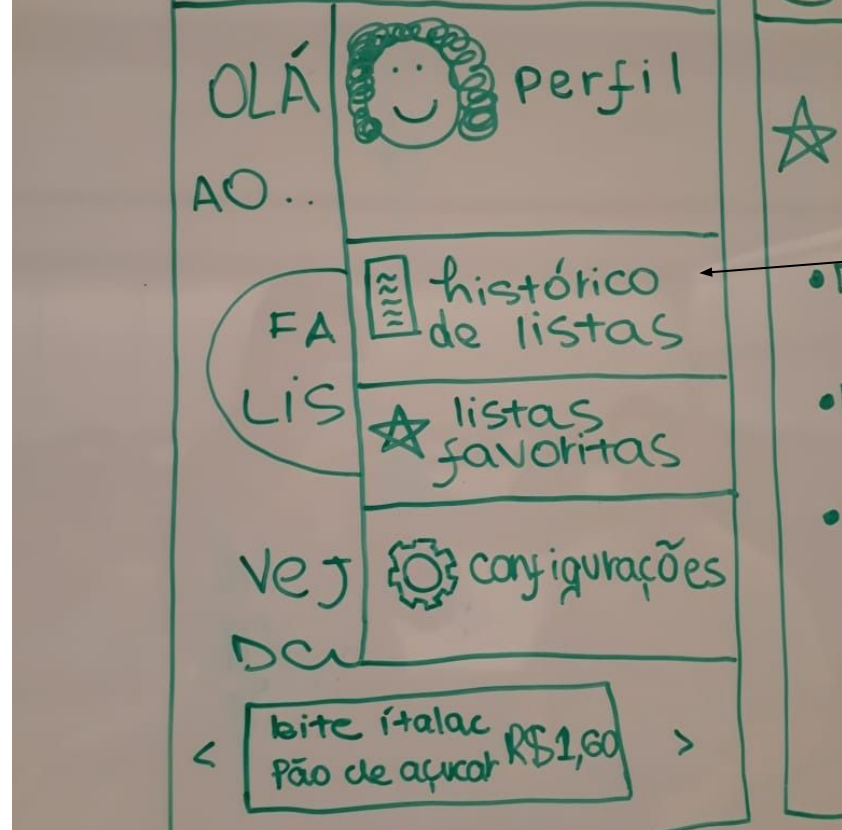 OLÁ
AO..
perfil
histórico
de listas
FA
LIS
listas
favoritas
VEJ
configurações
leite ítalac
Pão de açucar
R$1,60
<
>